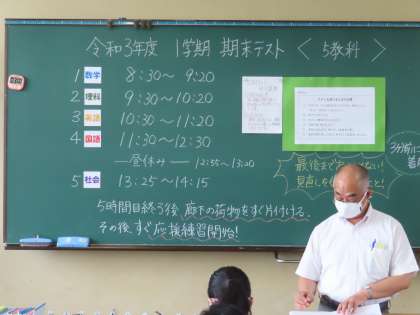 令和3年度 1学期 期末テスト <5教科>
1 数学 8:30～ 9:20
2 理科 9:30～10:20
3 英語 10:30～11:20
4 国語 11:30～12:30
―昼休み― 12:55～13:20
5 社会 13:25～14:15
5時間目終了後 廊下の荷物をすぐ片付ける。
その後、すぐ応援練習開始!
最後まであ
見直しを
3分前に